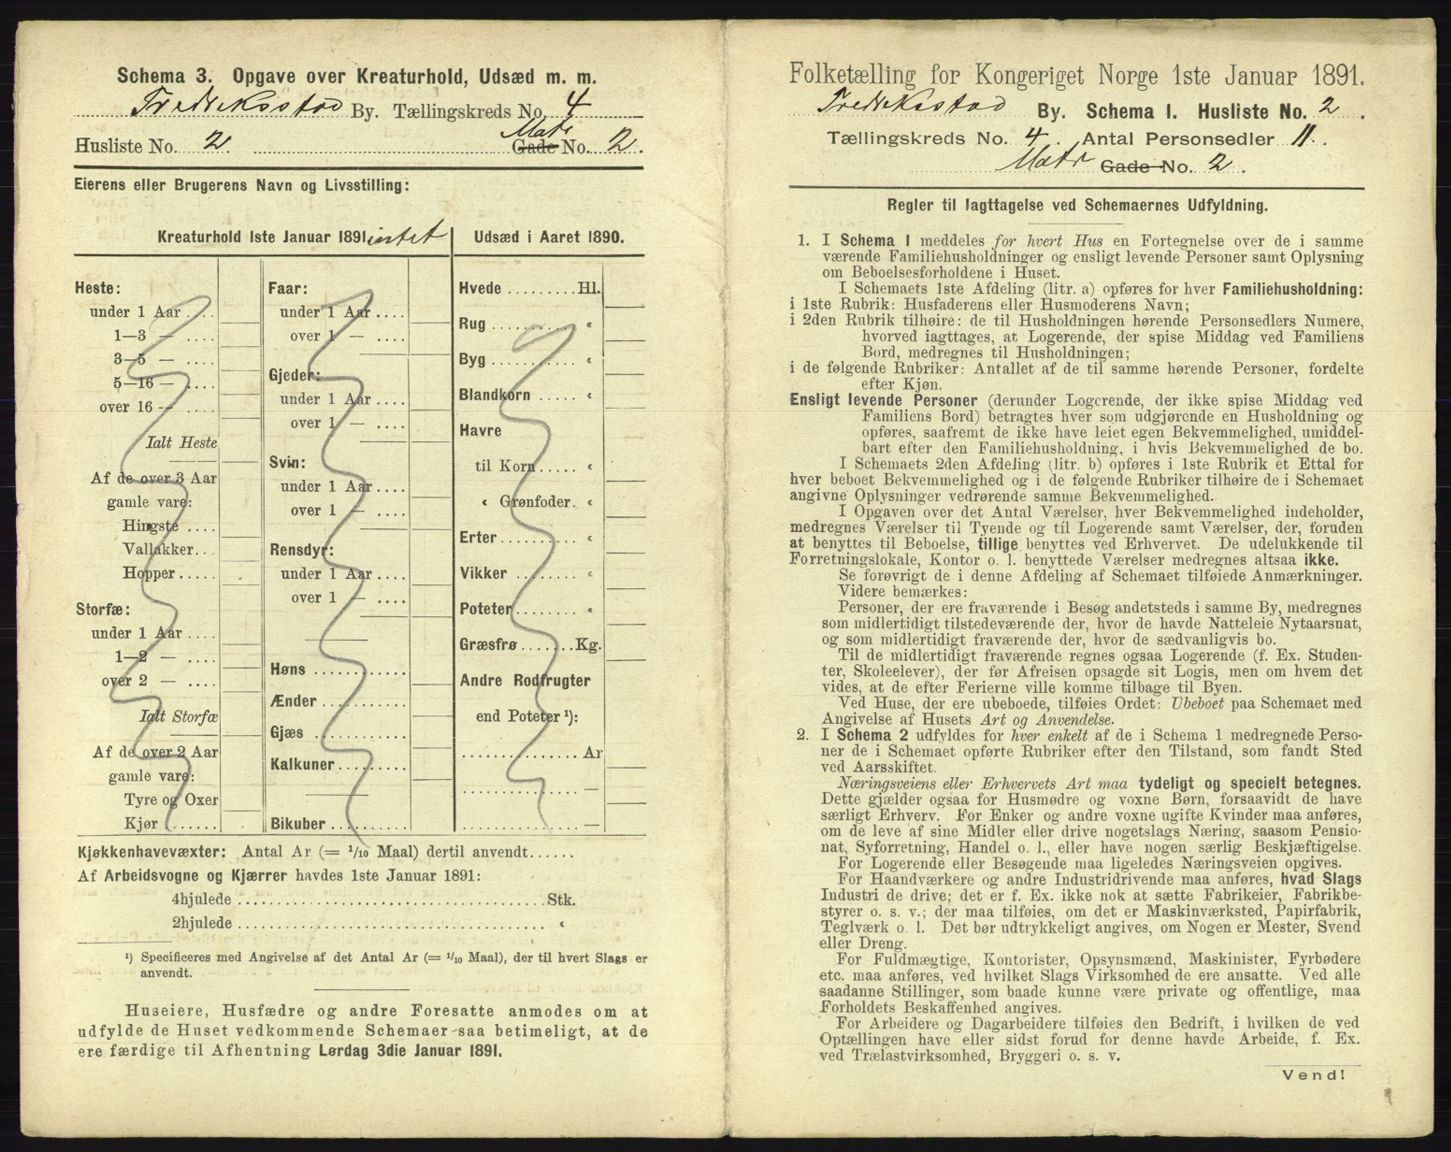 Schema 3. Opgave over Kreaturhold, Udsæd m. m.
Fredriksstad By. Tællingskreds No. 4
Husliste No. 2 Matr Gade No. 2.
Eierens eller Brugerens Navn og Livsstilling:
Kreaturhold 1ste Januar 1891 intet
Heste:
under 1 Aar ....
1—3 — ....
3—5 — ....
5—16 — ....
over 16 —
Ialt Heste
Af de over 3 Aar
gamle vare:
Hingste ....
Vallakker...
Hopper.....
Storfæ:
under 1 Aar ....
1—2 — ....
over 2 — ....
Ialt Storfæ
Af de over 2 Aar
gamle vare:
Tyre og Oxer
Kjør ........
Faar:
under 1 Aar ....
over 1 — ....
Gjeder:
under 1 Aar ....
over 1 — ....
Svin:
under 1 Aar ....
over 1 — ....
Rensdyr:
under 1 Aar ....
over 1 — ....
Høns ............
Ænder ..........
Gjæs ............
Kalkuner.........
Bikuber ..........
Udsæd i Aaret 1890.
Hvede ......... Hl.
Rug ............ «
Byg ............ «
Blandkorn ..... «
Havre
til Korn..... «
« Grønfoder. «
Erter .......... «
Vikker ......... «
Poteter......... «
Græsfrø ....... Kg.
Andre Rodfrugter
end Poteter ¹):
................ Ar
................ —
................ —
Kjøkkenhavevæxter: Antal Ar (= 1/10 Maal) dertil anvendt......
Af Arbeidsvogne og Kjærrer havdes 1ste Januar 1891:
4hjulede ........................................ Stk.
2hjulede ........................................ «
¹) Specificeres med Angivelse af det Antal Ar (= 1/10 Maal), der til hvert Slags er
anvendt.
Huseiere, Husfædre og andre Foresatte anmodes om at
udfylde de Huset vedkommende Schemaer saa betimeligt, at de
ere færdige til Afhentning Lørdag 3die Januar 1891.
Folketælling for Kongeriget Norge 1ste Januar 1891.
Fredriksstad By. Schema I. Husliste No. 2.
Tællingskreds No. 4. Antal Personsedler 11.
Matr Gade No. 2.
Regler til Iagttagelse ved Schemaernes Udfyldning.
1. I Schema 1 meddeles for hvert Hus en Fortegnelse over de i samme
værende Familiehusholdninger og ensligt levende Personer samt Oplysning
om Beboelsesforholdene i Huset.
I Schemaets 1ste Afdeling (litr. a) opføres for hver Familiehusholdning:
i 1ste Rubrik: Husfaderens eller Husmoderens Navn;
i 2den Rubrik tilhøire: de til Husholdningen hørende Personsedlers Numere,
hvorved iagttages, at Logerende, der spise Middag ved Familiens
Bord, medregnes til Husholdningen;
i de følgende Rubriker: Antallet af de til samme hørende Personer, fordelte
efter Kjøn.
Ensligt levende Personer (derunder Logerende, der ikke spise Middag ved
Familiens Bord) betragtes hver som udgjørende en Husholdning og
opføres, saafremt de ikke have leiet egen Bekvemmelighed, umiddel-
bart efter den Familiehusholdning, i hvis Bekvemmelighed de bo.
I Schemaets 2den Afdeling (litr. b) opføres i 1ste Rubrik et Ettal for
hver beboet Bekvemmelighed og i de følgende Rubriker tilhøire de i Schemaet
angivne Oplysninger vedrørende samme Bekvemmelighed.
I Opgaven over det Antal Værelser, hver Bekvemmelighed indeholder,
medregnes Værelser til Tyende og til Logerende samt Værelser, der, foruden
at benyttes til Beboelse, tillige benyttes ved Erhvervet. De udelukkende til
Forretningslokale, Kontor o. l. benyttede Værelser medregnes altsaa ikke.
Se forøvrigt de i denne Afdeling af Schemaet tilføiede Anmærkninger.
Videre bemærkes:
Personer, der ere fraværende i Besøg andetsteds i samme By, medregnes
som midlertidigt tilstedeværende der, hvor de havde Natteleie Nytaarsnat,
og som midlertidigt fraværende der, hvor de sædvanligvis bo.
Til de midlertidigt fraværende regnes ogsaa Logerende (f. Ex. Studen-
ter, Skoleelever), der før Afreisen opsagde sit Logis, men om hvem det
vides, at de efter Ferierne ville komme tilbage til Byen.
Ved Huse, der ere ubeboede, tilføies Ordet: Ubeboet paa Schemaet med
Angivelse af Husets Art og Anvendelse.
2. I Schema 2 udfyldes for hver enkelt af de i Schema 1 medregnede Perso-
ner de i Schemaet opførte Rubriker efter den Tilstand, som fandt Sted
ved Aarsskiftet.
Næringsveiens eller Erhvervets Art maa tydeligt og specielt betegnes.
Dette gjælder ogsaa for Husmødre og voxne Børn, forsaavidt de have
særligt Erhverv. For Enker og andre voxne ugifte Kvinder maa anføres,
om de leve af sine Midler eller drive nogetslags Næring, saasom Pensio-
nat, Syforretning, Handel o. l., eller have nogen særlig Beskjæftigelse.
For Logerende eller Besøgende maa ligeledes Næringsveien opgives.
For Haandværkere og andre Industridrivende maa anføres, hvad Slags
Industri de drive; det er f. Ex. ikke nok at sætte Fabrikeier, Fabrikbe-
styrer o. s. v.; der maa tilføies, om det er Maskinværksted, Papirfabrik,
Teglværk o. l. Det bør udtrykkeligt angives, om Nogen er Mester, Svend
eller Dreng.
For Fuldmægtige, Kontorister, Opsynsmænd, Maskinister, Fyrbødere
etc. maa anføres, ved hvilket Slags Virksomhed de ere ansatte. Ved alle
saadanne Stillinger, som baade kunne være private og offentlige, maa
Forholdets Beskaffenhed angives.
For Arbeidere og Dagarbeidere tilføies den Bedrift, i hvilken de ved
Optællingen have eller sidst forud for denne havde Arbeide, f. Ex.
ved Trælastvirksomhed, Bryggeri o. s. v.
Vend!